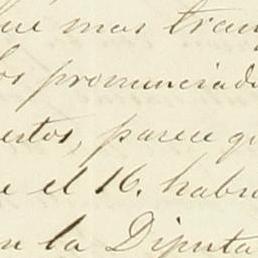 ue mas tran
os pronunciado
ertos, parece q
e el 16. habr
n la Diputa